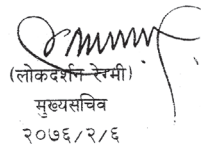 (लोकदर्शन रेग्मी)
मुख्यसचिव
२०७६/२/६